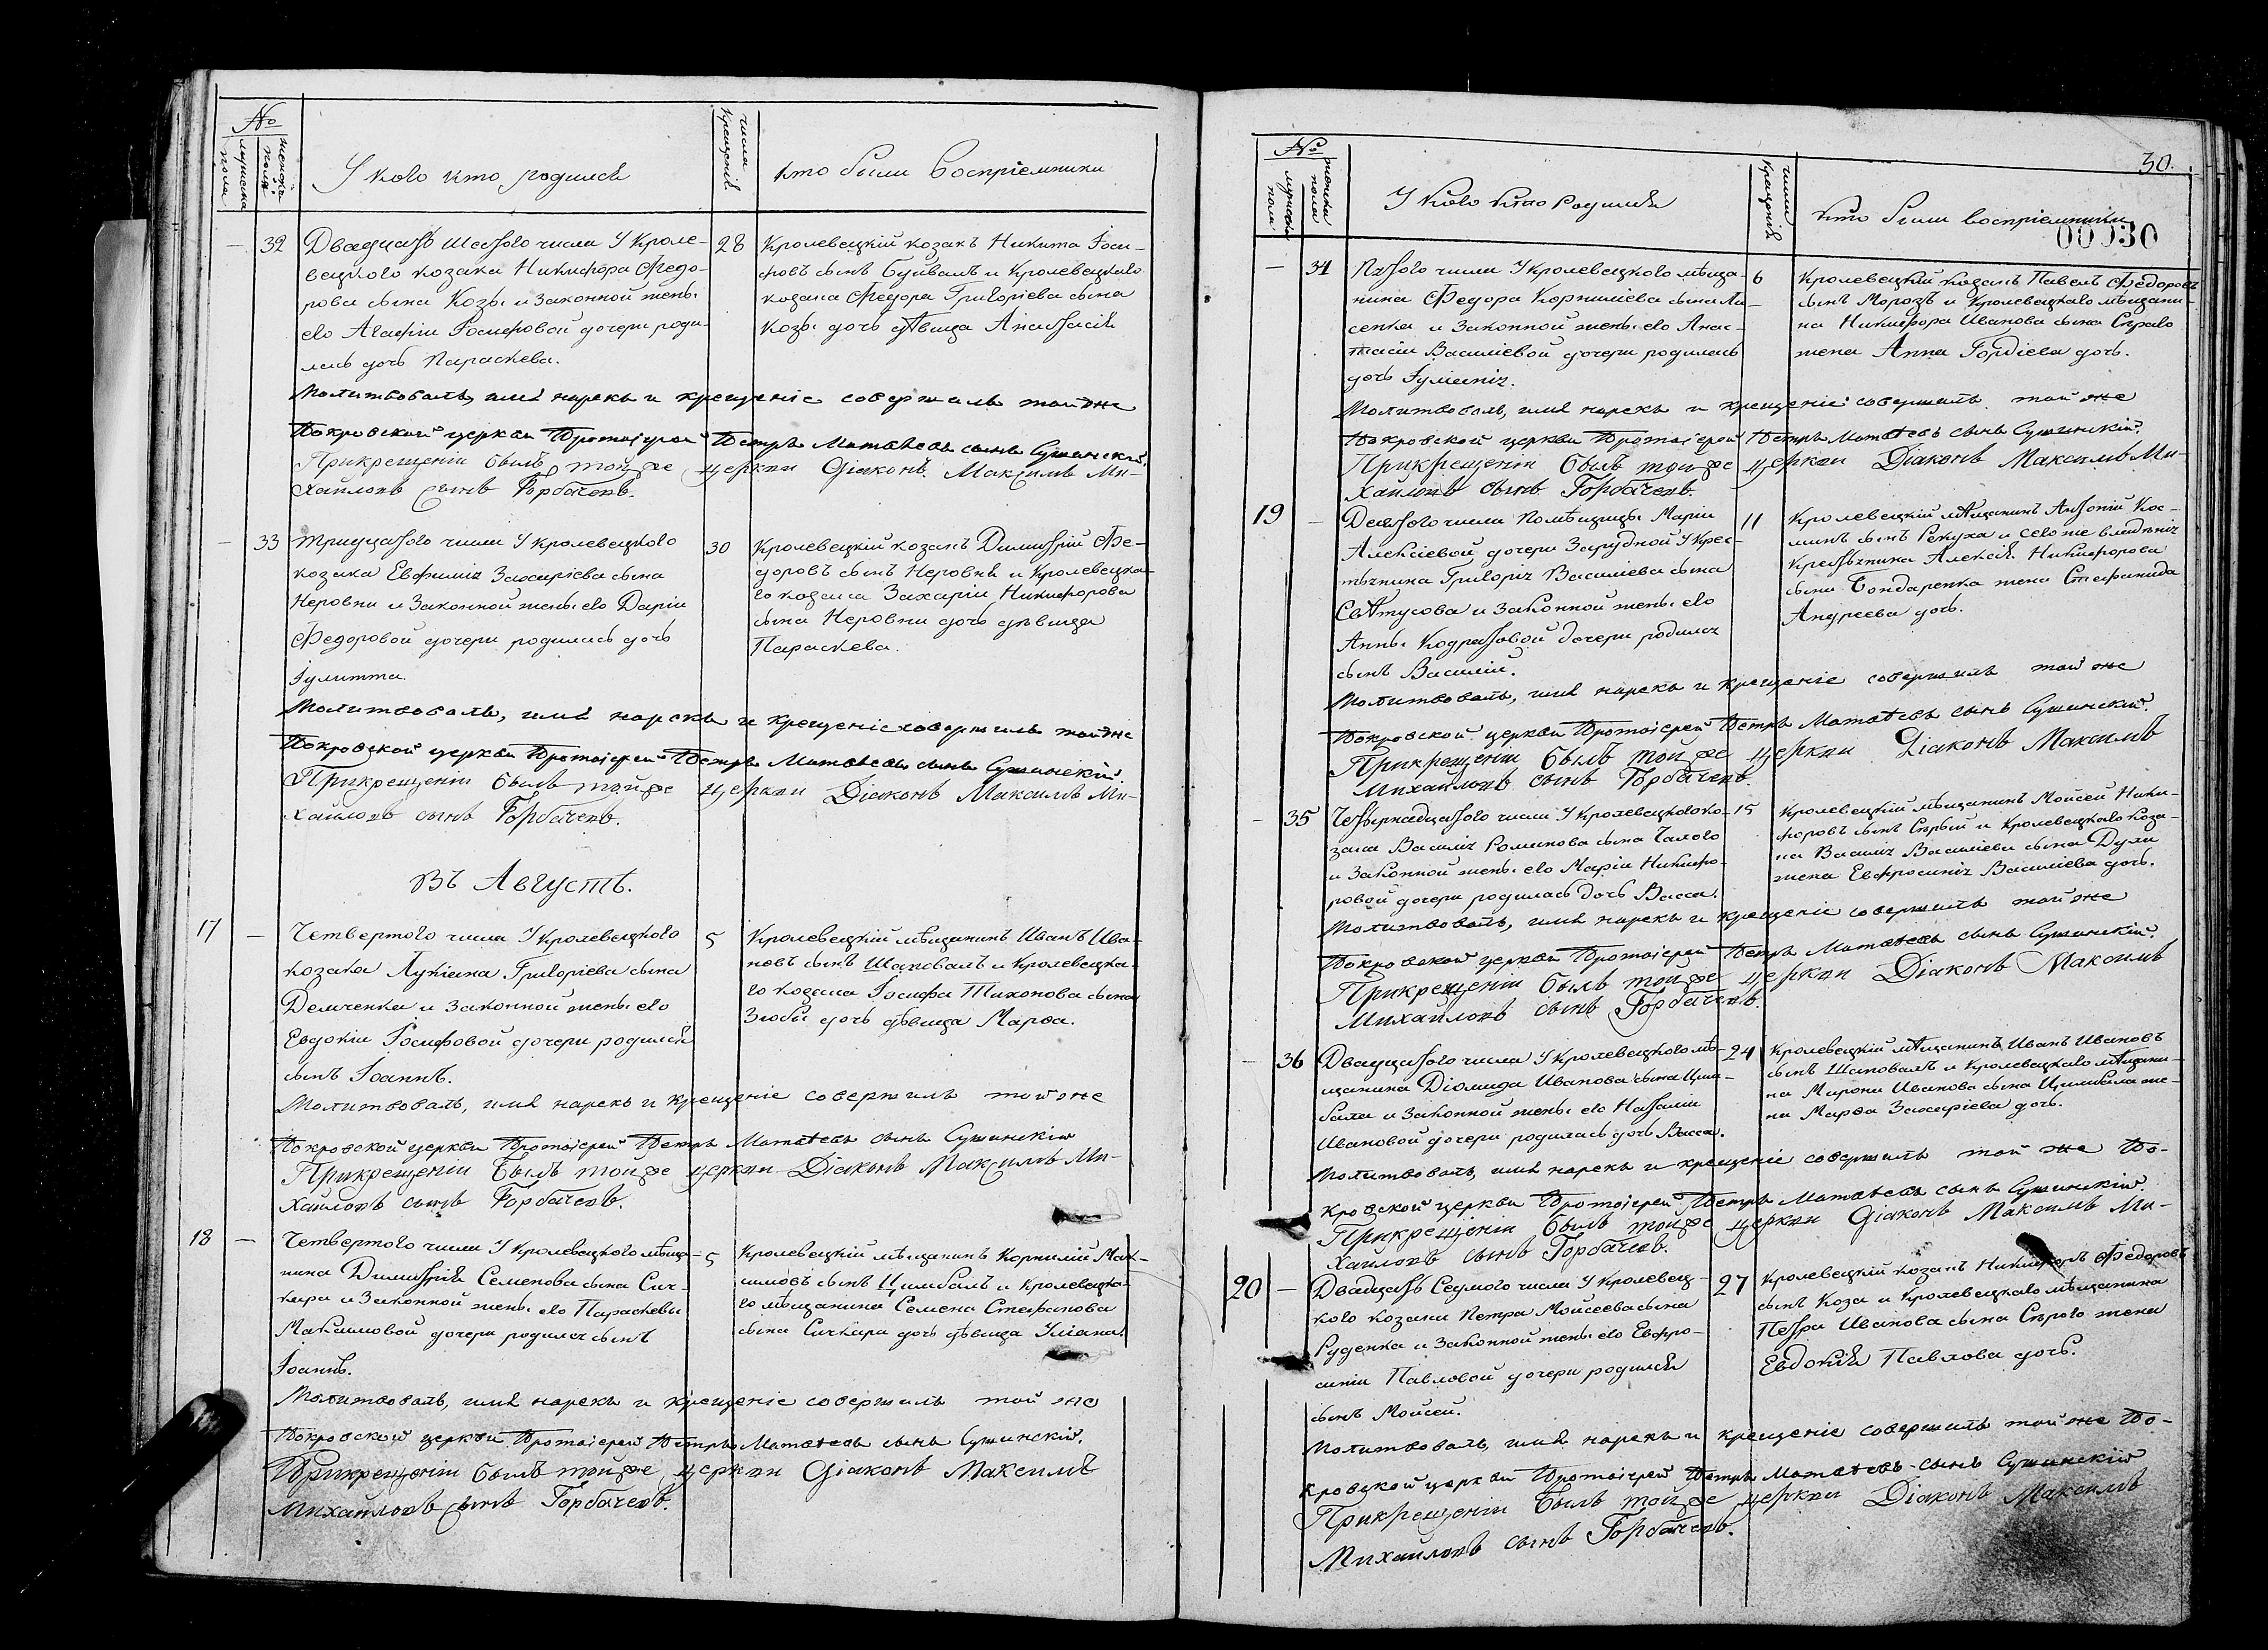 №
мужеска пола
женска пола
У кого кто родился
числа крещенія
кто были воспріемники
— 32 Двадцать шестого числа У Кроле-
вецкого козака Никифора Федо-
рова сына Козы и законной жены
его Агафіи Іосифовой дочери роди-
лась дочь Параскева.
28 Кролевецкій козакъ Никита Іоси-
фовъ сынъ Буйвалъ и Кролевецкаго
козака Федора Григоріева сына
Козы дочь дѣвица Анастасія
Молитвовалъ, имя нарекъ и крещеніе совершилъ той же
Покровской церкви Протоіерей Петръ Матвѣевъ сынъ Сушинскій.
При крещеніи былъ той же церкви Діаконъ Максимъ Ми-
хайловъ сынъ Горбачевъ.
— 33 Тридцатого числа У Кролевецкого
козака Евфимія Захаріева сына
Неровни и законной жены его Даріи
Федоровой дочери родилась дочь
Іулитта.
30 Кролевецкій козакъ Димитрій Фе-
доровъ сынъ Неровня и Кролевецка-
го козака Захаріи Никифорова
сына Неровни дочь дѣвица
Параскева.
Молитвовалъ, имя нарекъ и крещеніе совершилъ той же
Покровской церкви Протоіерей Петръ Матвѣевъ сынъ Сушинскій.
При крещеніи былъ той же церкви Діаконъ Максимъ Ми-
хайловъ сынъ Горбачевъ.
Въ Августѣ.
17 — Четвертого числа У Кролевецкого
козака Лукіана Григоріева сына
Демченка и законной жены его
Евдокіи Іосифовой дочери родился
сынъ Іоаннъ.
5 Кролевецкій мѣщанинъ Иванъ Ива-
новъ сынъ Шаповалъ и Кролевецка-
го козака Іосифа Тихонова сына
Зюбы дочь дѣвица Марѳа.
Молитвовалъ, имя нарекъ и крещеніе совершилъ той же
Покровской церкви Протоіерей Петръ Матвѣевъ сынъ Сушинскій
При крещеніи былъ той же церкви Діаконъ Максимъ Ми-
хайловъ сынъ Горбачевъ.
18 — Четвертого числа У Кролевецкого мѣща-
нина Димитрія Семенова сына Сич-
кара и законной жены его Параскевы
Максимовой дочери родился сынъ
Іоаннъ.
5 Кролевецкій мѣщанинъ Корнилій Мак-
симовъ сынъ Цимбалъ и Кролевецко-
го мѣщанина Семена Стефанова
сына Сичкара дочь дѣвица Уліана.
Молитвовалъ, имя нарекъ и крещеніе совершилъ той же
Покровской церкви Протоіерей Петръ Матвѣевъ сынъ Сушинскій.
При крещеніи былъ той же церкви Діаконъ Максимъ
Михайловъ сынъ Горбачевъ.
30.
00030
№
мужеска пола
женска пола
У кого кто родился
числа крещенія
кто были воспріемники
— 34 Пятого числа У Кролевецкого мѣща-
нина Федора Корниліева сына Ли-
сенка и законной жены его Анас-
тасіи Василіевой дочери родилась
дочь Іуліанія.
6 Кролевецкій козакъ Павелъ Федоровъ
сынъ Морозъ и Кролевецкаго мѣщани-
на Никифора Иванова сына Сѣраго
жена Анна Гордіева дочь.
Молитвовалъ, имя нарекъ и крещеніе совершилъ той же
Покровской церкви Протоіерей Петръ Матвѣевъ сынъ Сушинскій.
При крещеніи былъ той же церкви Діаконъ Максимъ Ми-
хайловъ сынъ Горбачевъ.
19 — Десятого числа Помѣщицы Маріи
Алексіевой дочери Зарудной У крес-
тьянина Григорія Василіева сына
Святусова и законной жены его
Анны Кодратовой дочери родился
сынъ Василій.
11 Кролевецкій мѣщанинъ Антоній Кос-
минъ сынъ Рекуха и сего же владѣнія
крестьянина Алексія Никифорова
сына Бондаренка жена Стефанида
Андреева дочь.
Молитвовалъ, имя нарекъ и крещеніе совершилъ той же
Покровской церкви Протоіерей Петръ Матвѣевъ сынъ Сушинскій.
При крещеніи былъ той же церкви Діаконъ Максимъ
Михайловъ сынъ Горбачевъ.
— 35 Четырнадцатого числа У Кролевецкого ко-
зака Василія Романова сына Чалого
и законной жены его Маріи Никифо-
ровой дочери родилась дочь Васса.
15 Кролевецкій мѣщанинъ Мойсей Ники-
форовъ сынъ Сѣрый и Кролевецкаго коза-
ка Василія Василіева сына Дули
жена Евфросинія Василіева дочь.
Молитвовалъ, имя нарекъ и крещеніе совершилъ той же
Покровской церкви Протоіерей Петръ Матвѣевъ сынъ Сушинскій.
При крещеніи былъ той же церкви Діаконъ Максимъ
Михайловъ сынъ Горбачевъ.
— 36 Двадцатого числа У Кролевецкого мѣ-
щанина Діомида Иванова сына Цим-
бала и законной жены его Наталіи
Ивановой дочери родилась дочь Васса.
24 Кролевецкій мѣщанинъ Иванъ Ивановъ
сынъ Шаповалъ и Кролевецкаго мѣщани-
на Мирона Иванова сына Цимбала же-
на Марѳа Захаріева дочь.
Молитвовалъ, имя нарекъ и крещеніе совершилъ той же По-
кровской церкви Протоіерей Петръ Матвѣевъ сынъ Сушинскій
При крещеніи былъ той же церкви Діаконъ Максимъ Ми-
хайловъ сынъ Горбачевъ.
20 — Двадцать Седмого числа У Кролевец-
кого козака Петра Мойсеева сына
Руденка и законной жены его Евфро-
синіи Павловой дочери родился
сынъ Мойсей.
27 Кролевецкій козакъ Никифоръ Федоровъ
сынъ Коза и Кролевецкаго мѣщанина
Петра Иванова сына Сѣрого жена
Евдокія Павлова дочь.
Молитвовалъ, имя нарекъ и крещеніе совершилъ той же По-
кровской церкви Протоіерей Петръ Матвѣевъ сынъ Сушинскій
При крещеніи былъ той же церкви Діаконъ Максимъ
Михайловъ сынъ Горбачевъ.